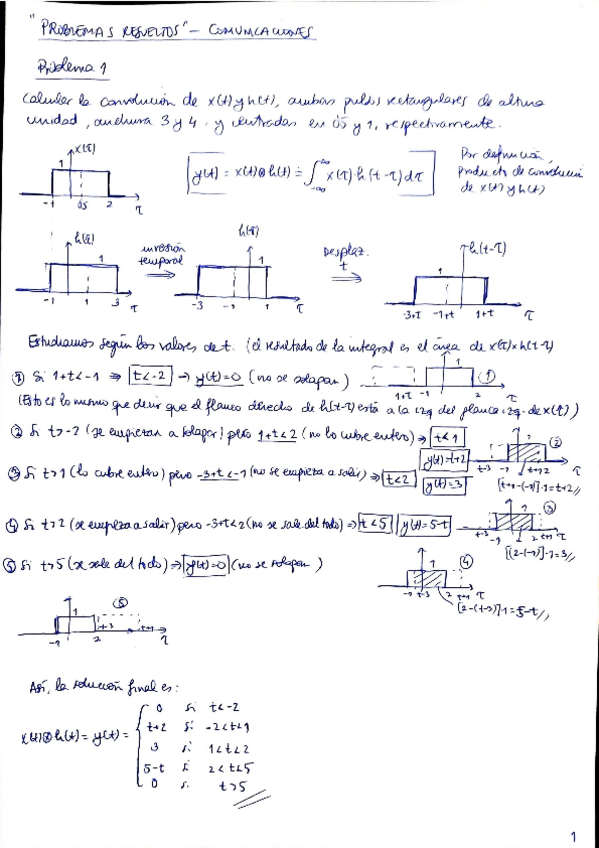 "PROBLEMAS RESUELTOS" – COMUNICACIONES
Problema 1
Calcular la convolución de x(t) y h(t), ambos pulsos rectangulares de altura
unidad, anchura 3 y 4 y centrados en 0,5 y 1, respectivamente.
x(τ)
1
-1 0,5 2 τ
y(t) = x(t)⊗h(t) = ∫_{-∞}^{∞} x(τ)·h(t-τ)dτ
Por definición,
producto de convolución
de x(t) y h(t)
h(τ)
1
-1 1 3 τ
inversión
temporal
⇒
h(-τ)
1
-3 -1 1 τ
Desplaz.
t
⇒
h(t-τ)
1
-3+t -1+t 1+t τ
Estudiamos según los valores de t. (el resultado de la integral es el área de x(τ)×h(t-τ)
① Si 1+t<-1 ⇒ t<-2 → y(t)=0 (no se solapan)
1 ①
1+t -1 2 τ
(Esto es lo mismo que decir que el flanco derecho de h(t-τ) está a la izq del flanco izq. de x(τ))
② Si t>-2 (se empiezan a solapar) pero 1+t<2 (no lo cubre entero) ⇒ t<1
y(t)=t+2
1 ②
t-3 -1 t+1 2 τ
[t+1-(-1)]·1=t+2//
③ Si t>1 (lo cubre entero) pero -3+t<-1 (no se empieza a salir) ⇒ t<2
y(t)=3
1 ③
t-3 -1 2 t+1 τ
[(2-(-1)]·1=3//
④ Si t>2 (se empieza a salir) pero -3+t<2 (no se sale del todo) ⇒ t<5 y(t)=5-t
1 ④
-1 t-3 2 t+1 τ
[2-(t-3)]·1=5-t//
⑤ Si t>5 (se sale del todo) ⇒ y(t)=0 (no se solapan)
1 ⑤
-1 2 t-3 t+1 τ
Así, la solución final es:
x(t)⊗h(t)=y(t)=
0 si t<-2
t+2 si -2<t<1
3 si 1<t<2
5-t si 2<t<5
0 si t>5
1